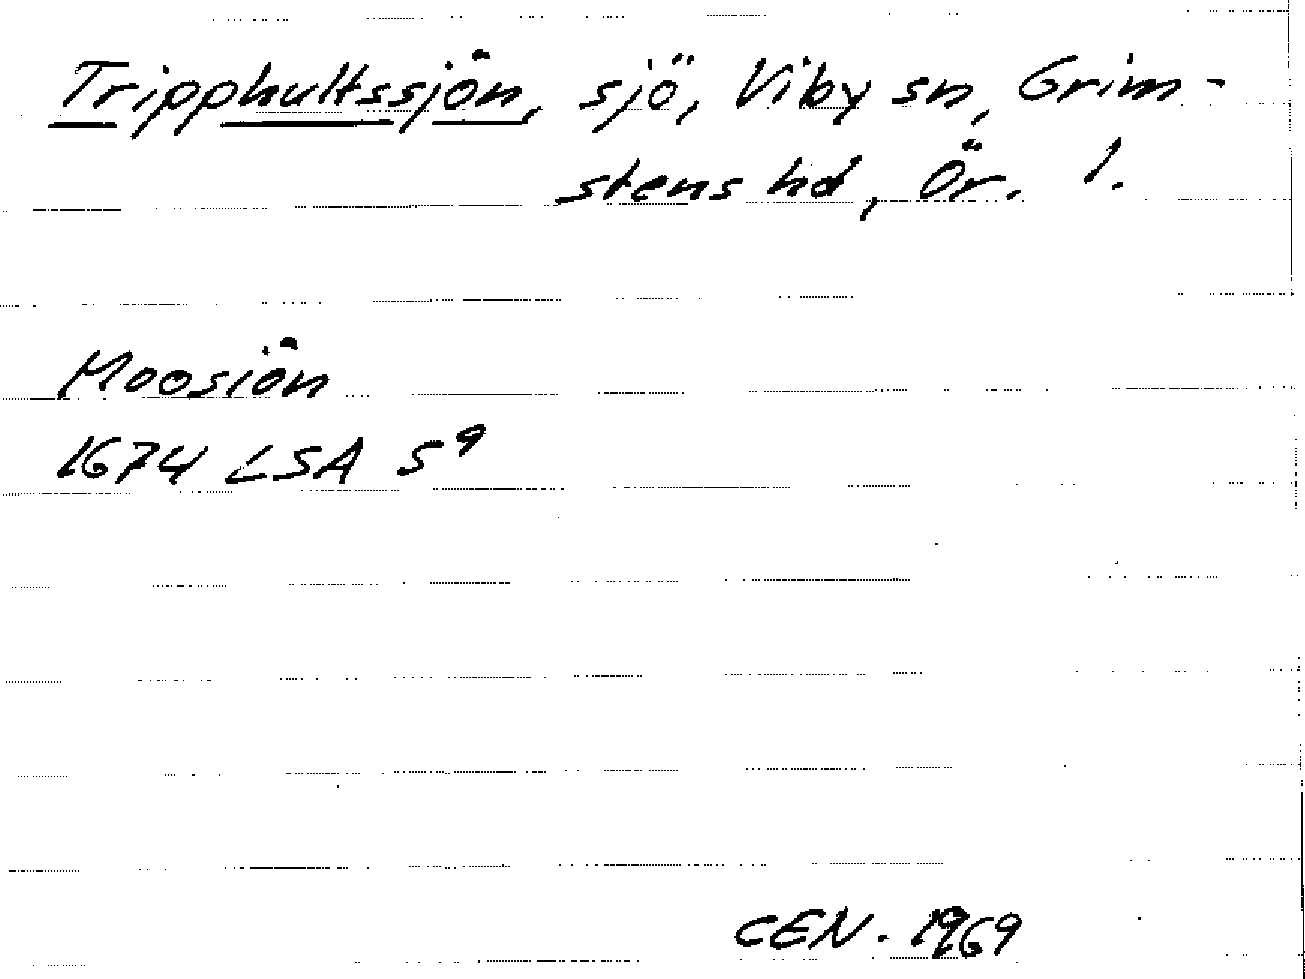 Tripphultssjön, sjö, Viby sn, Grim-
stens hd, Ör. l.
Moosiön
1674 LSA S⁹
CEN. 1969